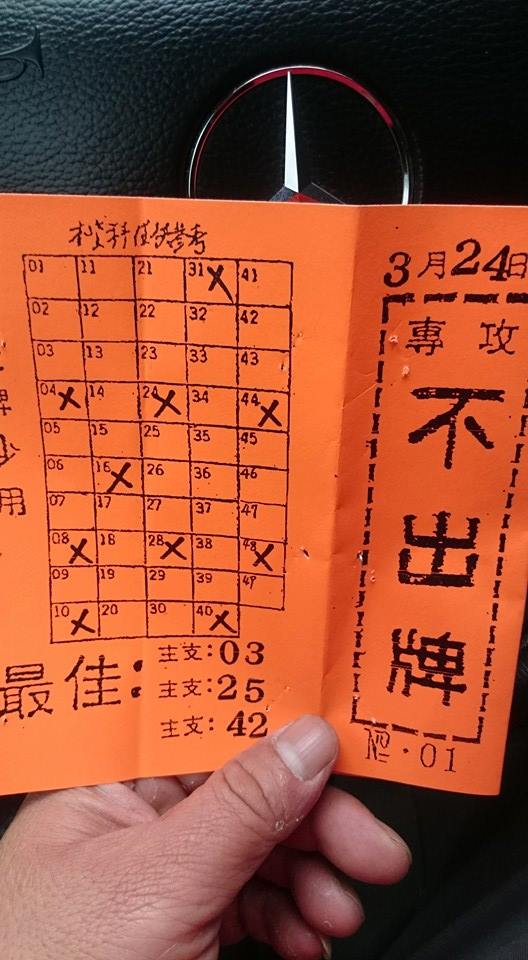 3月24日
專攻
不出牌
№.01
參考
01 11 21 31X 41
02 12 22 32 42
03 13 23 33 43
04X 14 24X 34 44X
05 15 25 35 45
06 16X 26 36 46
07 17 27 37 47
08X 18 28X 38 48X
09 19 29 39 49
10X 20 30 40X
最佳:
主支:03
主支:25
主支:42
用